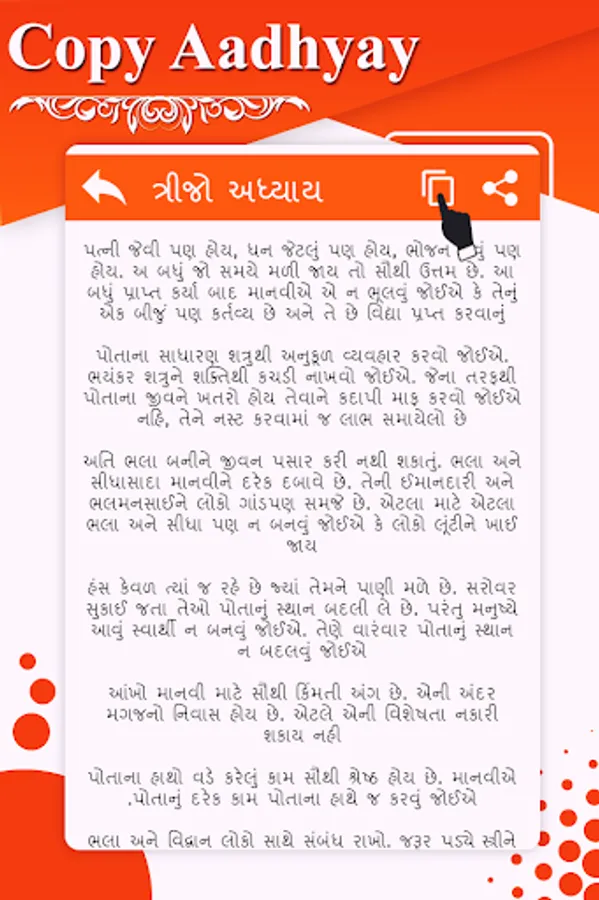 Copy Aadhyay
ત્રીજો અધ્યાય
પત્ની જેવી પણ હોય, ધન જેટલું પણ હોય, ભોજન પણ
હોય. અ બધું જો સમયે મળી જાય તો સૌથી ઉત્તમ છે. આ
બધું પ્રાપ્ત કર્યા બાદ માનવીએ એ ન ભૂલવું જોઈએ કે તેનું
એક બીજું પણ કર્તવ્ય છે અને તે છે વિદ્યા પ્રપ્ત કરવાનું
પોતાના સાધારણ શત્રુથી અનુકૂળ વ્યવહાર કરવો જોઈએ.
ભયંકર શત્રુને શક્તિથી કચડી નાખવો જોઈએ. જેના તરફથી
પોતાના જીવને ખતરો હોય તેવાને કદાપી માફ કરવો જોઈએ
નહિ, તેને નસ્ટ કરવામાં જ લાભ સમાયેલો છે
અતિ ભલા બનીને જીવન પસાર કરી નથી શકાતું. ભલા અને
સીધાસાદા માનવીને દરેક દબાવે છે. તેની ઈમાનદારી અને
ભલમનસાઈને લોકો ગાંડપણ સમજે છે. એટલા માટે એટલા
ભલા અને સીધા પણ ન બનવું જોઈએ કે લોકો લૂંટીને ખાઈ
જાય
હંસ કેવળ ત્યાં જ રહે છે જ્યાં તેમને પાણી મળે છે. સરોવર
સુકાઈ જતા તેઓ પોતાનું સ્થાન બદલી લે છે. પરંતુ મનુષ્યે
આવું સ્વાર્થી ન બનવું જોઈએ. તેણે વારંવાર પોતાનું સ્થાન
ન બદલવું જોઈએ
આંખો માનવી માટે સૌથી કિંમતી અંગ છે. એની અંદર
મગજનો નિવાસ હોય છે. એટલે એની વિશેષતા નકારી
શકાય નહી
પોતાના હાથો વડે કરેલું કામ સૌથી શ્રેષ્ઠ હોય છે. માનવીએ
.પોતાનું દરેક કામ પોતાના હાથે જ કરવું જોઈએ
ભલા અને વિદ્વાન લોકો સાથે સંબંધ રાખો. જરૂર પડ્યે સ્ત્રીને